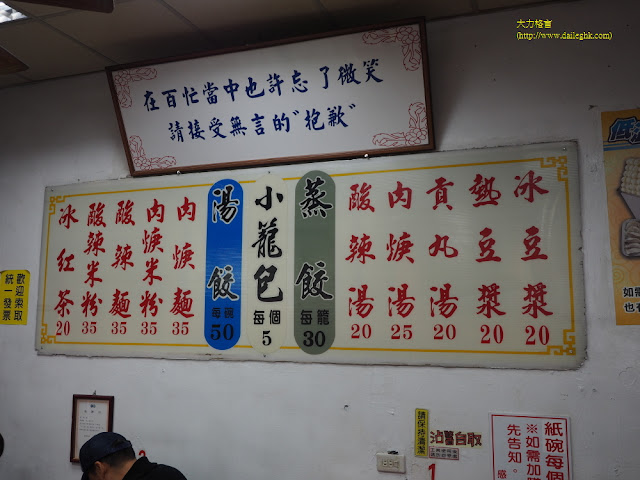 大力格言
(http://www.daileghk.com)
在百忙當中也許忘了微笑
請接受無言的"抱歉"
冰豆漿 20
熱豆漿 20
貢丸湯 20
肉焿湯 25
酸辣湯 20
蒸餃 每籠 30
小籠包 每個 5
湯餃 每碗 50
肉焿麵 35
肉焿米粉 35
酸辣麵 35
酸辣米粉 35
冰紅茶 20
歡迎索取
統一發票
請保持清潔
沾醬自取
紙碗每個
※如需加購
先告知。
如需
也